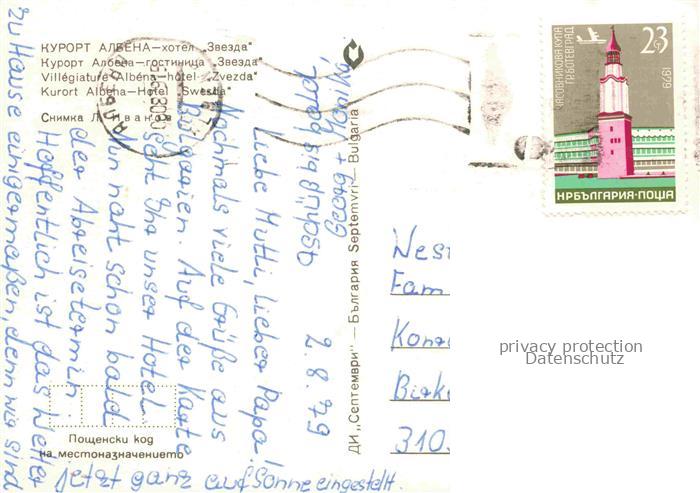 КУРОРТ АЛБЕНА—хотел „Звезда"
Курорт Албена—гостиница „Звезда"
Villégiature Albéna—hôtel „Zvezda"
Kurort Albena—Hotel „Swesda"
Снимка Л.
23
ЧАСОВНИКОВА КУЛА
ГР. БОТЕВГРАД
1979
НР БЪЛГАРИЯ·ПОЩА
2.8.79
Liebe Mutti, lieber Papa!
Nochmals viele Grüße aus
Bulgarien. Auf der Karte
seht Ihr unser Hotel.
Nun naht schon bald
der Abreisetermin.
Hoffentlich ist das Wetter
zu Hause einigermaßen, denn wir sind
jetzt ganz auf Sonne eingestellt.
Georg + Monika
ДИ „Септември" — България Septemvri — Bulgaria
Fam
310
privacy protection
Datenschutz
Пощенски код
на местоназначението